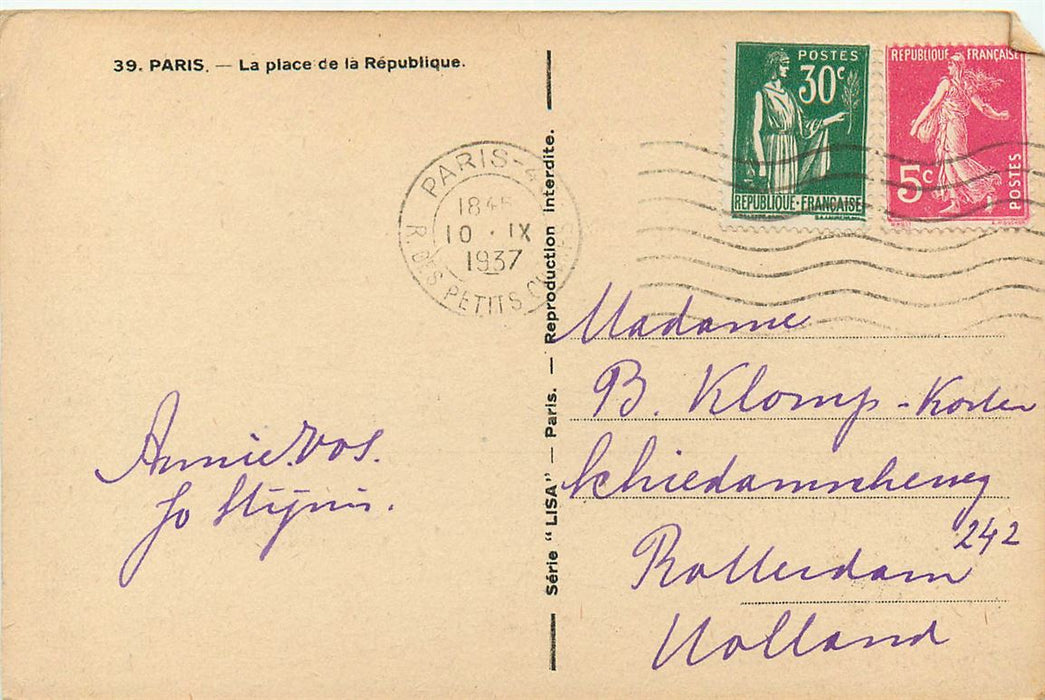 39. PARIS. — La place de la République.
POSTES
30c
REPUBLIQUE·FRANÇAISE
REPUBLIQUE FRANÇAISE
5c
POSTES
PARIS-4
1845
10 · IX
1937
R. DES PETITS
Série "LISA" — Paris. — Reproduction interdite.
Madame
B. Klomp-
Schiedamscheweg
242
Rotterdam
Holland
Annie Vos.
Jo